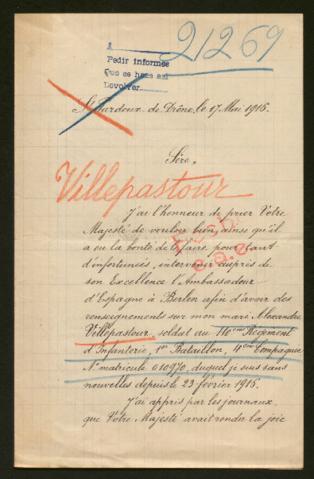 21269
A
Pedir informes
Que se hace así
Devolver
St Pardoux de Drône, le 17 Mai 1916.
Sire,
Villepastour
J'ai l'honneur de prier Votre
Majesté de vouloir bien, ainsi qu'il
a eu la bonté de le faire pour tant
d'infortunés, intervenir auprès de
son Excellence l'Ambassadeur
d'Espagne à Berlin afin d'avoir des
renseignements sur mon mari Alexandre
Villepastour, soldat au 116ème Régiment
d'Infanterie, 1er Bataillon, 4ème Compagnie
N° matricule 010970, duquel je suis sans
nouvelles depuis le 23 février 1916.
J'ai appris par les journaux
que Votre Majesté avait rendu la joie